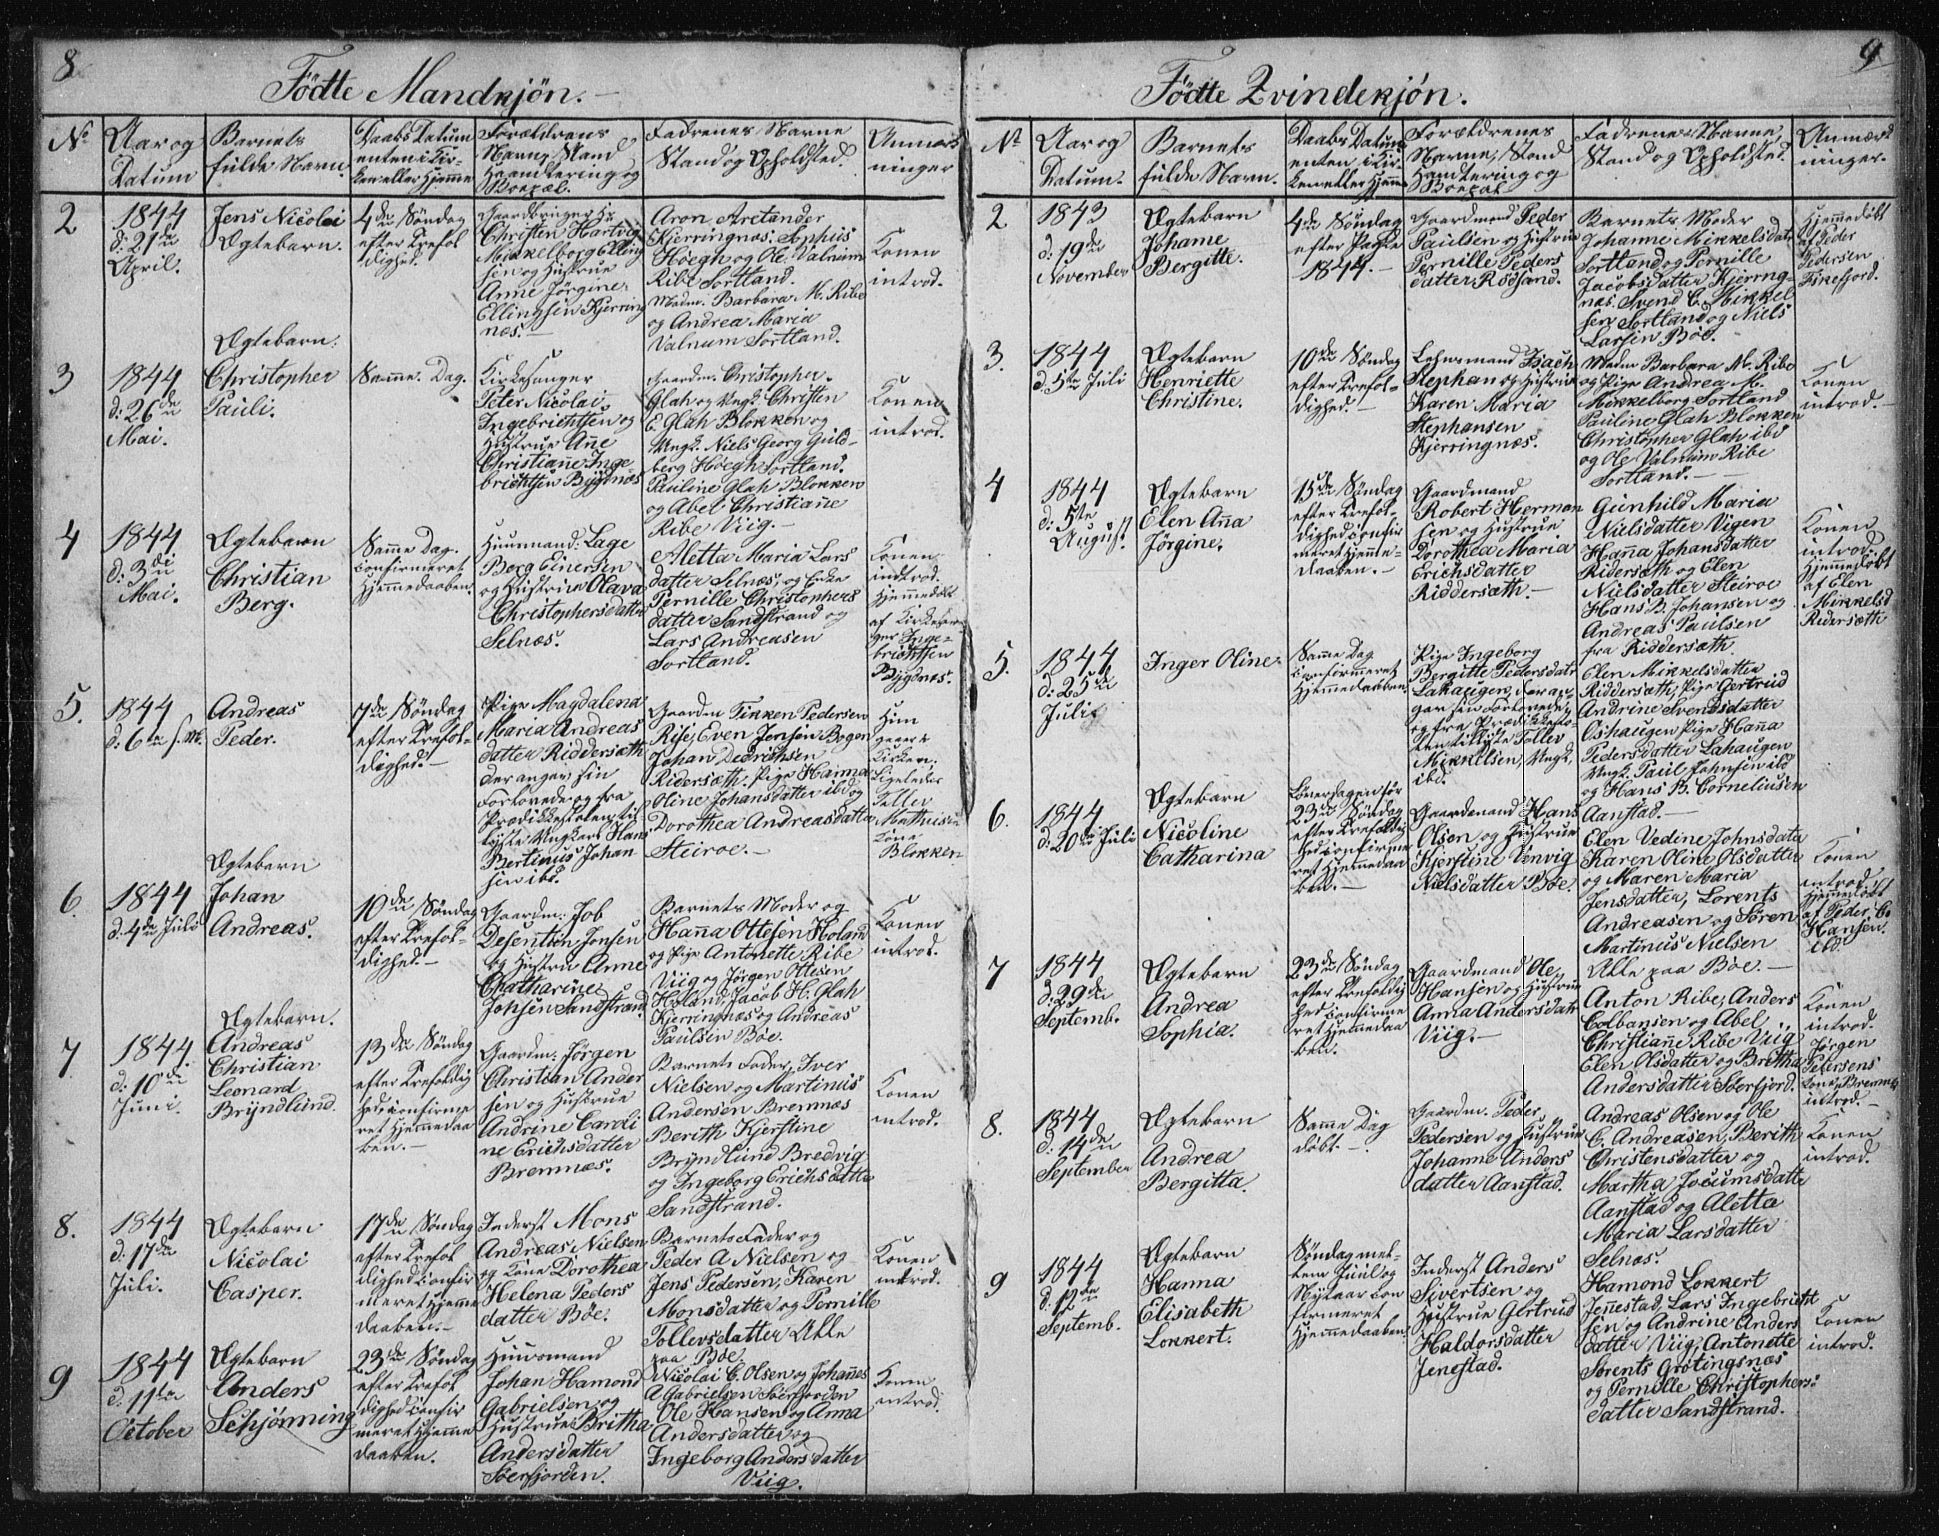 8
Födte Mandkjön.
No
Aar og
Datum
Barnets
fulde Navn.
Daabs Datum
enten i Kir-
ken eller Hjemme
Forældrenes
Navne, Stand
Haandtering og
Boepæl.
Fadrenes Navne
Stand og Opholdsted.
Anmærk
ninger
2
1844
d: 21de
April.
Jens Nicolai
Ægtebarn.
4de Søndag
efter Trefol
dighed.
Gaardbruger H:
Christen Hartvig
Mikkelborg Elling
sen og Hustrue
Anne Jörgine
Ellingsen Kjerring
næs.
Aron Aretander
Kjerringnæs, Sophus
Höegh og Ole Valnum
Ribe Sortland.
Madm. Barbara M. Ribe
og Andrea Maria
Valnum Sortland.
Konen
introd.
3
1844
d: 26de
Mai.
Ægtebarn:
Christopher
Pauli.
Samme Dag.
Kirkesanger
Peter Nicolai
Ingebrichtsen og
Hustrue Ane
Christiane Inge
brichtsen Bygdnæs
Gaardm. Christopher
Glah og Ungk. Christen
E. Glah Blokken og
Ungk. Niels Georg Guld-
berg Höegh Sortland.
Pauline Glah Blokken
og Abel Christiane
Ribe Viig.
Konen
introd.
4
1844
d: 3di
Mai.
Ægtebarn
Christian
Berg.
Samme Dag.
confirmeret
Hjemmedaaben.
Huusmand: Lage
Berg Einersen
og Hustrue Olava
Christophersdatter
Selnæs.
Aletta Maria Lars
datter Selnæs, og Enke
Pernille Christophers
datter Sandstrand og
Lars Andreasen
Sortland.
Konen
indtrod.
Hjemmedöbt
af Kirkesan-
ger Inge-
brichtsen
Bygdnæs.
5.
1844
d: 6te
Andreas
Peder.
7de Søndag
efter Trefol-
dighed.
Pige Magdalena
Maria Andreas
datter Riddersæth
der angav sin
Forlovede og fra
Prædikkestolen til
lyste Ungkarl Hans
Bertinus Johan
sen ibd.
Gaardm Finken Pedersen
Rise, Even Jensen Bogen
Johan Dedrichsen
Ridersæth, Pige Hanna
Oline Johansdatter ibd og
Dorothea Andreasdatter
Steiroe.
Hun
Kirken.
Ligeledes
Kone
Blokken
6.
1844
d: 4de Juli
Ægtebarn
Johan
Andreas.
10de Søndag
efter Trefol-
dighed.
Gaardm: Job
Desentius Jonsen
og Hustru Anne
Chatharine
Johsen Sandstrand
Barnets Moder og
Hanna Ottesen Holand
og Pige Antonette Ribe
Viig og Jörgen Ottesen
Holand, Jacob H. Glah
Kjerringnæs og Andreas
Paulsen Böe.
Konen
introd.
7.
1844.
d: 10de
Juni.
Ægtebarn.
Andreas
Christian
Leonard
Bryndlund.
13de Søndag
efter Trefoldig
hed confirme
ret Hjemmedaa
ben.
Gaardm: Jörgen
Christian Ander
sen og Hustrue
Andrine Caroli
ne Erichsdatter
Bremnæs.
Barnets Fader, Iver
Nielsen og Martinus
Andersen Bremnæs
Berith Kjerstine
Bryndlund Bredvig
og Ingeborg Erichsdatter
Sandstrand.
Konen
introd.
8.
1844
d: 17de
Juli.
Ægtebarn
Nicolai
Casper.
17de Søndag
efter Trefol
dighed confir
meret Hjemme
daaben.
Inderst Mons
Andreas Nielsen
og Kone Dorothea
Helena Peders
datter Böe.
Barnets Fader og
Peder A Nielsen og
Jens Pedersen, Karen
Monsdatter og Pernille
Tollevsdatter Alle
paa Böe
Konen
introd.
9
1844
d: 11te
October
Ægtebarn
Anders
Schjønning
23de Søndag
efter Trefol
dighed confir
meret Hjemme
daaben.
Huusmand
Johan Hamond
Gabrielsen og
Hustrue Britha
Andersdatter
Soerfjorden.
Nicolai C. Olsen og Johannes
A Gabrielsen Soerfjorden
Ole Hansen og Anna
Andersdatter og
Ingeborg Andersdatter
Viig.
Konen
introd.
9
Födte Qvindekjön.
No
Aar og
Datum.
Barnets
fulde Navn.
Daabs Datum
enten i Kir
ken eller Hjemme
Forældrenes
Navne, Stand
Haandtering og
Boepæl
Fadrenes Navne,
Stand og Opholdsted.
Anmærk
ninger.
2
1843
d: 19de
November
Ægtebarn
Johanne
Bergitte.
4de Søndag
efter Paaske
1844.
Gaardmand Peder
Paulsen og Hustrue
Pernille Peders
datter Rödsand.
Barnets Moder
Johanne Mikkelsdatr
Sortland og Pernille
Jacobsdatter Kjerrng-
næs. Svend C. Mikkel
sen Sortland og Niels
Larsen Böe.
Hjemmedöbt
af Peder
Pedersen
Fiskefjord.
3.
1844
d: 5te Juli
Ægtebarn
Henriette
Christine.
10de Søndag
efter Trefol-
dighed.
Lehnsmand Isach
Stephan og Hustrue
Karen Maria
Stephansen
Kjerringnæs.
Madm Barbara M. Ribe
og Pige Andrea M.
Mikkelborg Sortland
Pauline Glah Blokken
Christopher Glah ibd
og Ole Valnum Ribe
Sortland.
Konen
introd.
4
1844
d: 5te
August.
Ægtebarn
Elen Ana
Jörgine.
15de Søndag
efter Trefol-
dighed confir
meret Hjemme-
daaben.
Gaardmand
Robert Herman
sen og Hustrue
Dorothea Maria
Erichsdatter
Riddersæth.
Gunhild Maria
Nielsdatter Vigen
Hana Johansdatter
Ridersæth og Elen
Nielsdatter Steiroe
Hans B. Johansen og
Andreas Paulsen
fra Riddersæth.
Konen
introd.
Hjemmedöbt
af Elen
Mikkelsd
Ridersæth
5.
1844
d: 25de
Juli.
Inger Oline
Samme Dag
confirmeret
Hjemmedaaben
Pige Ingeborg
Bergitte Pedersdatr
Lahaugen, der an-
gav sin Forlovede,
og fra Prædikkesto-
len tillyste Tollev
Mikkelsen, Ungk,
ibd.
Elen Mikkelsdatter
Riddersæth, Pige Gertrud
Andrine Svendsdatter
Oshaugen, Pige Hana
Pedersdatter Lahaugen
Ungk. Paul Johnsen ibd
og Hans B. Corneliusen
Aanstad.
6.
1844
d: 20de Juli
Ægtebarn
Nicoline
Catharina
Löverdagen för
23de Søndag
efter Trefoldig
hed confirme
ret Hjemmedaa
ben.
Gaardmand Hans
Olsen og Hustrue
Kjerstine Venvig
Nielsdatter Böe.
Elen Vedine Johnsdatr
Karen Oline Olsdatter
og Maren Maria
Jensdatter, Lorents
Andreasen og Sören
Martinus Nielsen
Alle paa Böe.
Konen
introd.
Hjemmedöbt
af Peder C.
Hansen
ibd.
7
1844
d: 29de
Septemb.
Ægtebarn
Andrea
Sophia.
23de Søndag
efter Trefoldig
hed confirme
ret Hjemmedaa
ben.
Gaardmand Ole
Hansen og Hustrue
Anna Andersdatr
Viig.
Anton Ribe, Anders
Colbansen og Abel
Christiane Ribe Viig
Elen Olsdatter og Britha
Andersdatter Soerfjord.
Konen
introd.
Jørgen
Petersens
Kone Bremnes
introd.
8.
1844
d: 14de
September
Ægtebarn
Andrea
Bergitta.
Samme Dag
döbt.
Gaardm. Peder
Pedersen og Hustrue
Johanne Anders
datter Aanstad.
Andreas Olsen og Ole
C. Andreasen, Berith
Christensdatter og
Martha Jocumsdatter
Aanstad og Aletta
Maria Larsdatter
Selnæs.
Konen
introd.
9
1844
d: 12te
Septemb.
Ægtebarn
Hanna
Elisabeth
Lokkert.
Søndag mel-
lem Juul og
Nytaar con
firmeret
Hjemmedaaben
Inderst Anders
Sivertsen og
Hustrue Gertrud
Haldorsdatter
Jenestad.
Hamond Lokkert
Jenestad, Lars Ingebricth
sen og Andrine Anders
datter Viig, Antonette
Sorents Grotingsnæs
og Pernille Christophers:
datter Sandstrand.
Konen
introd.